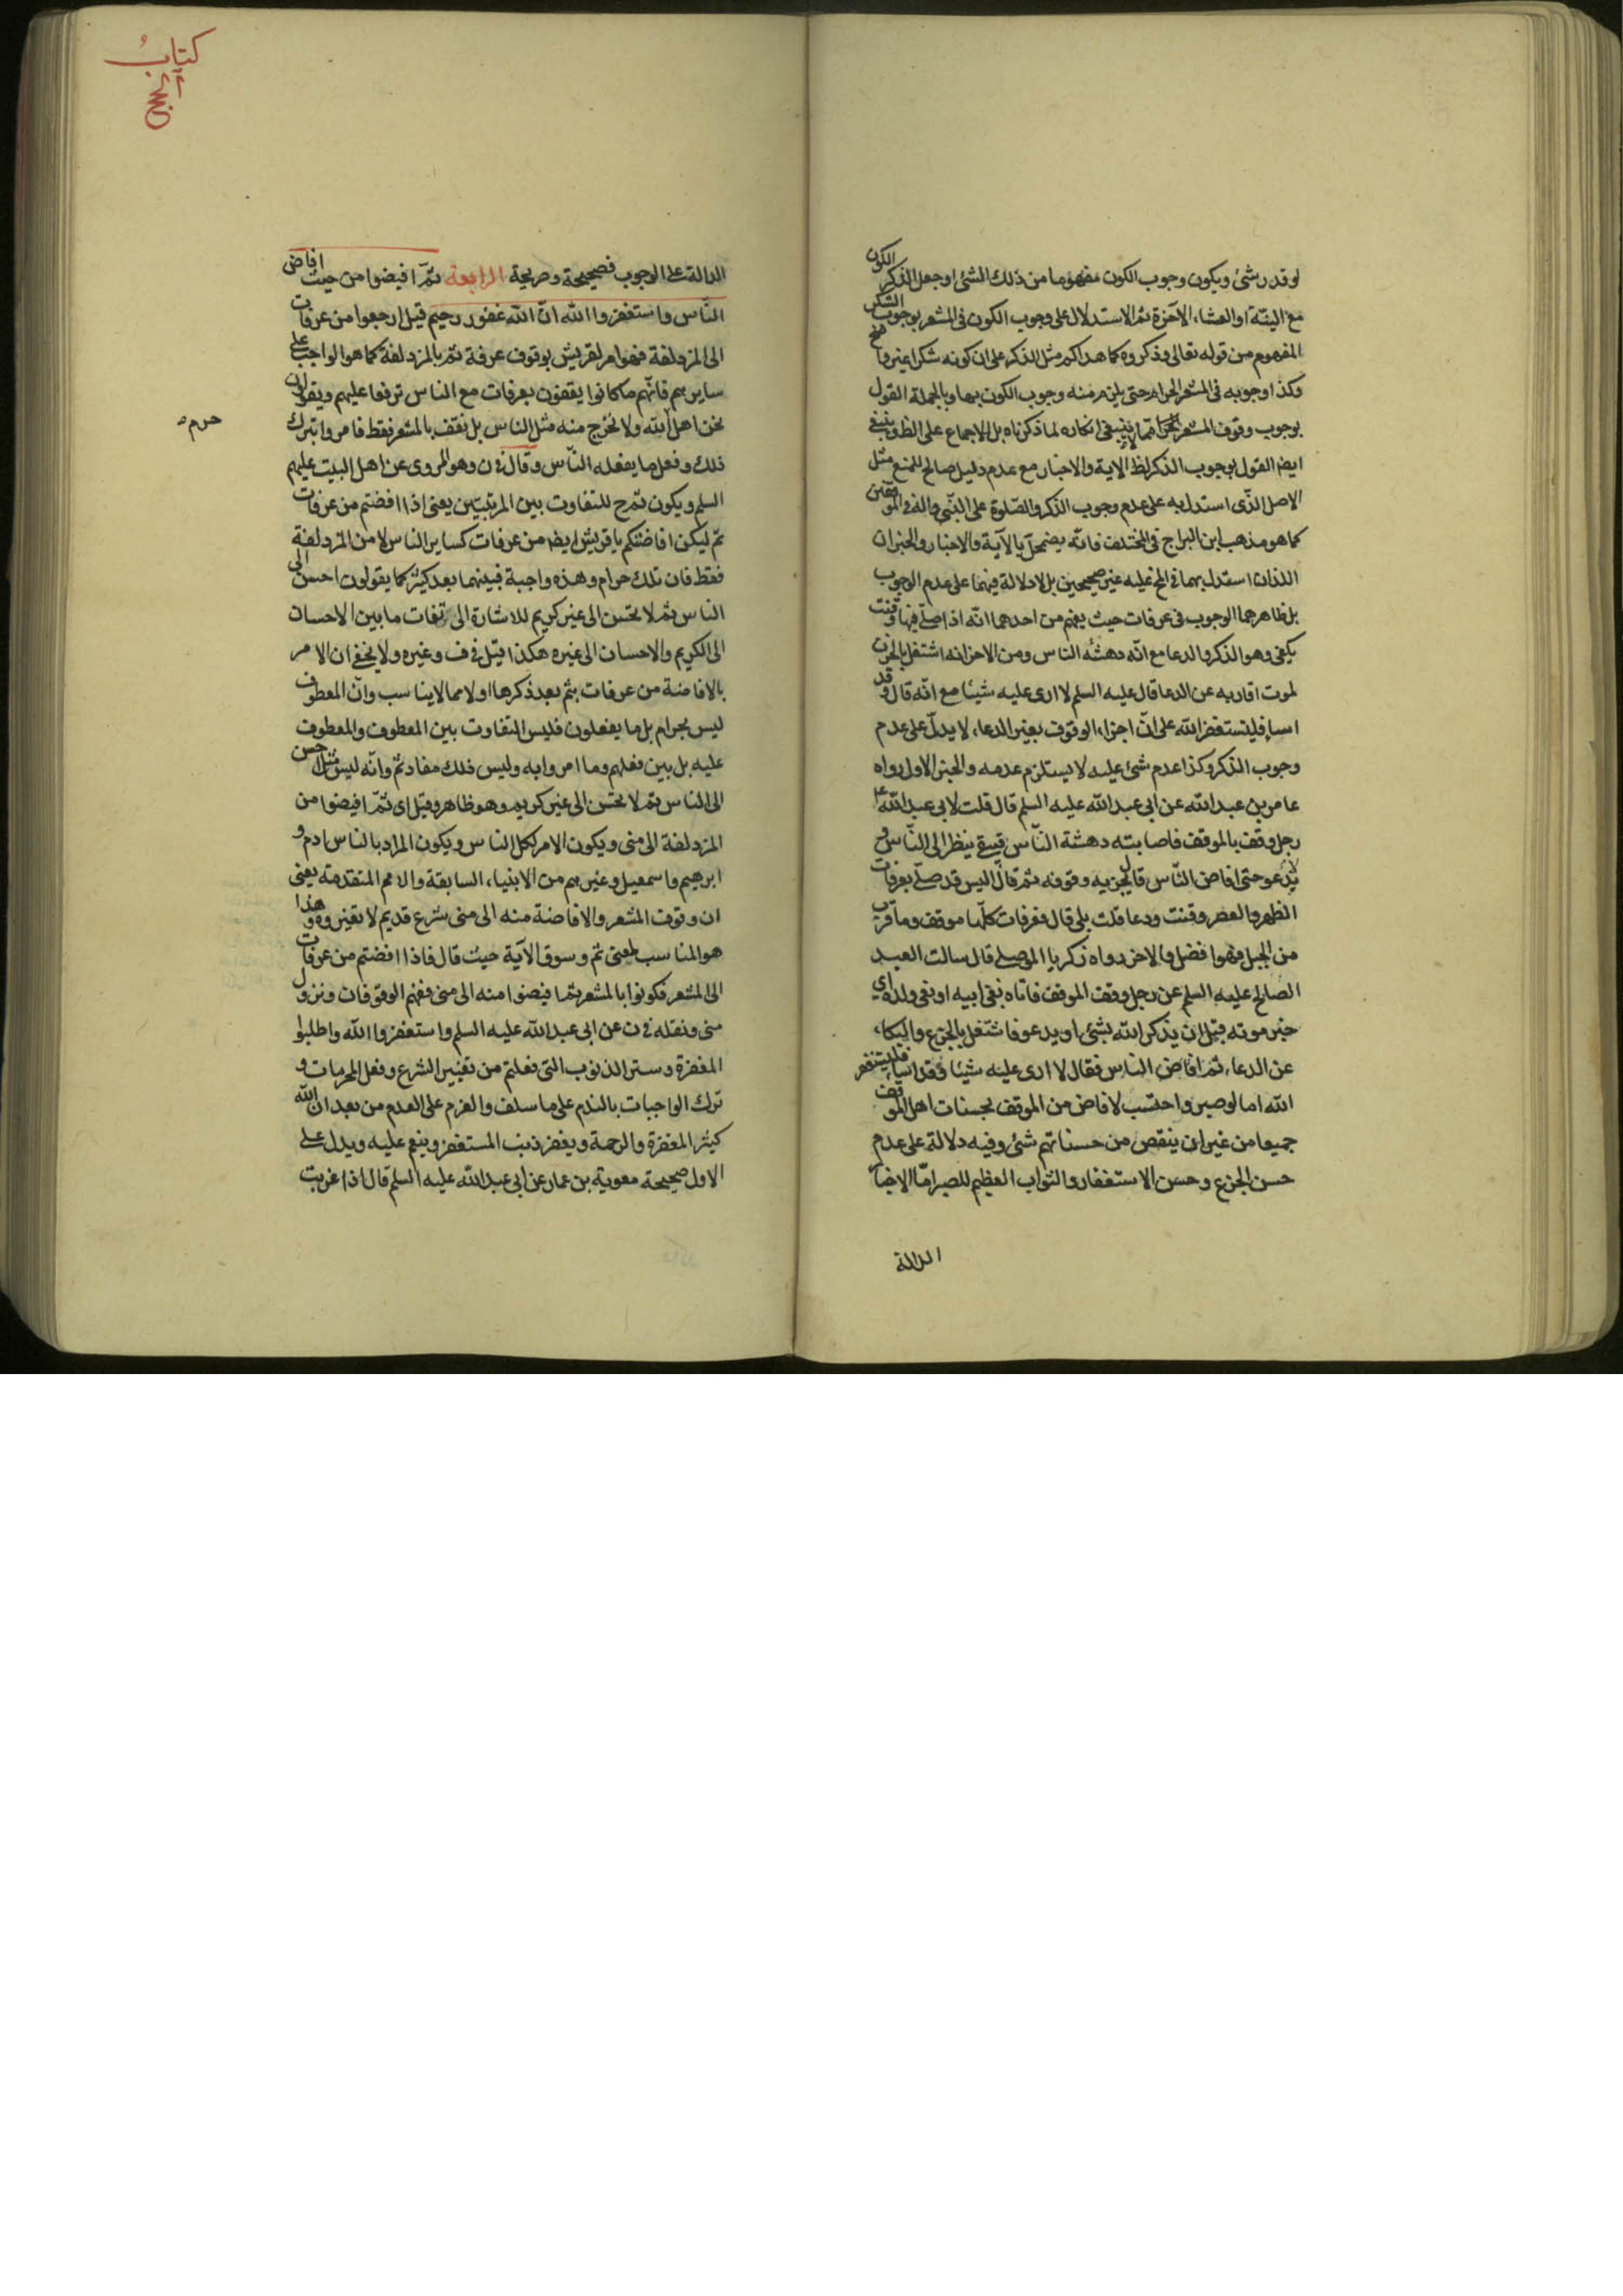 لو قدر شئ ويكون وجوب الكون مفهوما من ذلك الشئ او جعل الذكر الكون
مع النية او العشاء الآخرة ثم الاستدلال على وجوب الكون في المشعر بوجوب الشكر
المفهوم من قوله تعالى وذكروه كما هداكم مثل الذكر على ان كونه شكرا غير
وكذا وجوبه في المشعر الحرام حتى يلزم منه وجوب الكون بها وبالجملة القول
بوجوب وقوف المشعر الحرام مما لا ينبغي انكاره لما ذكرناه بل الاجماع على الظ وينبغي
ايضا القول بوجوب الذكر لظ الاية والاخبار مع عدم دليل صالح للمنع مثل
الاصل الذى استدل به على عدم وجوب الذكر والصلوة على النبي واله في الموقفين
كما هو مذهب ابن البراج في المختلف فانه يضمحل بالآية والاخبار والخبران
اللذان استدل بهما في المخ عليه غير صحيحين بل لا دلالة فيهما على عدم الوجوب
بل ظاهرهما الوجوب في عرفات حيث يفهم من احدهما انه اذا صلى فيها وقنت
يكفى وهو الذكر والدعا مع انه دهشه الناس ومن الاخر انه اشتغل بالحزن
لموت اقاربه عن الدعا قال عليه السلم لا ارى عليه شيئا مع انه قال وقد
اساء فليستغفر الله على ان اجزاء الوقوف بغير الدعاء لا يدل على عدم
وجوب الذكر وكذا عدم شئ عليه لا يستلزم عدمه والخبر الاول رواه
عامر بن عبد الله عن ابى عبد الله عليه السلم قال قلت لابى عبد الله ع
رجل وقف بالموقف فاصابته دهشة الناس فبقى ينظر الى الناس و
لا يدعو حتى افاض الناس قال يجزيه وقوفه ثم قال اليس قد صلى بعرفات
الظهر والعصر وقنت ودعا قلت بلى قال فعرفات كلها موقف وما قرب
من الجبل فهو افضل والاخر رواه زكريا الموصلى قال سالت العبد
الصالح عليه السلم عن رجل وقف الموقف فاتاه نعى ابيه او نعى ولده اي
خبر موته قبل ان يذكر الله بشئ او يدعو فاشتغل بالجزع والبكاء
عن الدعاء ثم افاض الناس فقال لا ارى عليه شيئا وقد اساء فليستغفر
الله اما لو صبر واحتسب لافاض من الموقف بحسنات اهل الموقف
جميعا من غير ان ينقص من حسناتهم شئ وفيه دلالة على عدم
حسن الجزع وحسن الاستغفار والثواب العظيم للصبر امّا الاخبار
الدالة
كتابُ
الحج
الدالة على الوجوب فصحيحة وصريحة الرابعة ثمّ افيضوا من حيث افاض
الناس واستغفروا الله انّ الله غفور رحيم قيل ارجعوا من عرفات
الى المزدلفة فهو امر لقريش بوقوف عرفة ثم بالمزدلفة كما هو الواجب على
سايرهم فانهم ما كانوا يقفون بعرفات مع الناس ترفعا عليهم ويقولون
نحن اهل الله ولا نخرج منه مثل الناس بل نقف بالمشعر فقط فامروا بترك
حرم ه
ذلك وفعل ما يفعله الناس وقال في ن وهو المروى عن اهل البيت عليهم
السلم ويكون ثم ح للتفاوت بين المرتبتين يعنى اذا افضتم من عرفات
ثم ليكن افاضتكم يا قريش ايضا من عرفات كساير الناس لا من المزدلفة
فقط فان تلك حرام وهذه واجبة فبينهما بعد كثير كما يقولون احسن الى
الناس ثم لا تحسن الى غير كريم للاشارة الى تفات ما بين الاحسان
الى الكريم والاحسان الى غيره هكذا قيل في ف وغيره ولا يخفى ان الامر
بالافاضة من عرفات بثم بعد ذكرها اولا مما لا يناسب وانّ المعطوف
ليس بحرام بل ما يفعلون فليس التفاوت بين المعطوف والمعطوف
عليه بل بين فعلهم وما امروا به وليس ذلك مفاد ثم وانّه ليس مثل احسن
الى الناس ثم لا تحسن الى غير كريم وهو ظاهر وقيل اى ثمّ افيضوا من
المزدلفة الى منى ويكون الامر لكل الناس ويكون المراد بالناس ادم و
ابرهيم واسمعيل وغيرهم من الانبياء السابقة والامم المتقدمة يعنى
ان وقوف المشعر والافاضة منه الى منى شرع قديم لا تغيروه وهذا
هو المناسب لمعنى ثم وسوق الآية حيث قال فاذا افضتم من عرفات
الى المشعر فكونوا بالمشعر ثم افيضوا منه الى منى ففهم الوقوفان ونزول
منى ونقله في ن عن ابى عبد الله عليه السلم واستغفروا الله واطلبوا
المغفرة وستر الذنوب التى فعلتم من تغيير الشرع وفعل المحرمات و
ترك الواجبات بالندم على ما سلف والعزم على العدم من بعد ان الله
كثير المغفرة والرحمة ويغفر ذنب المستغفر وينعم عليه ويدل على
الاول صحيحة معوية بن عمار عن ابى عبد الله عليه السلم قال اذا غربت